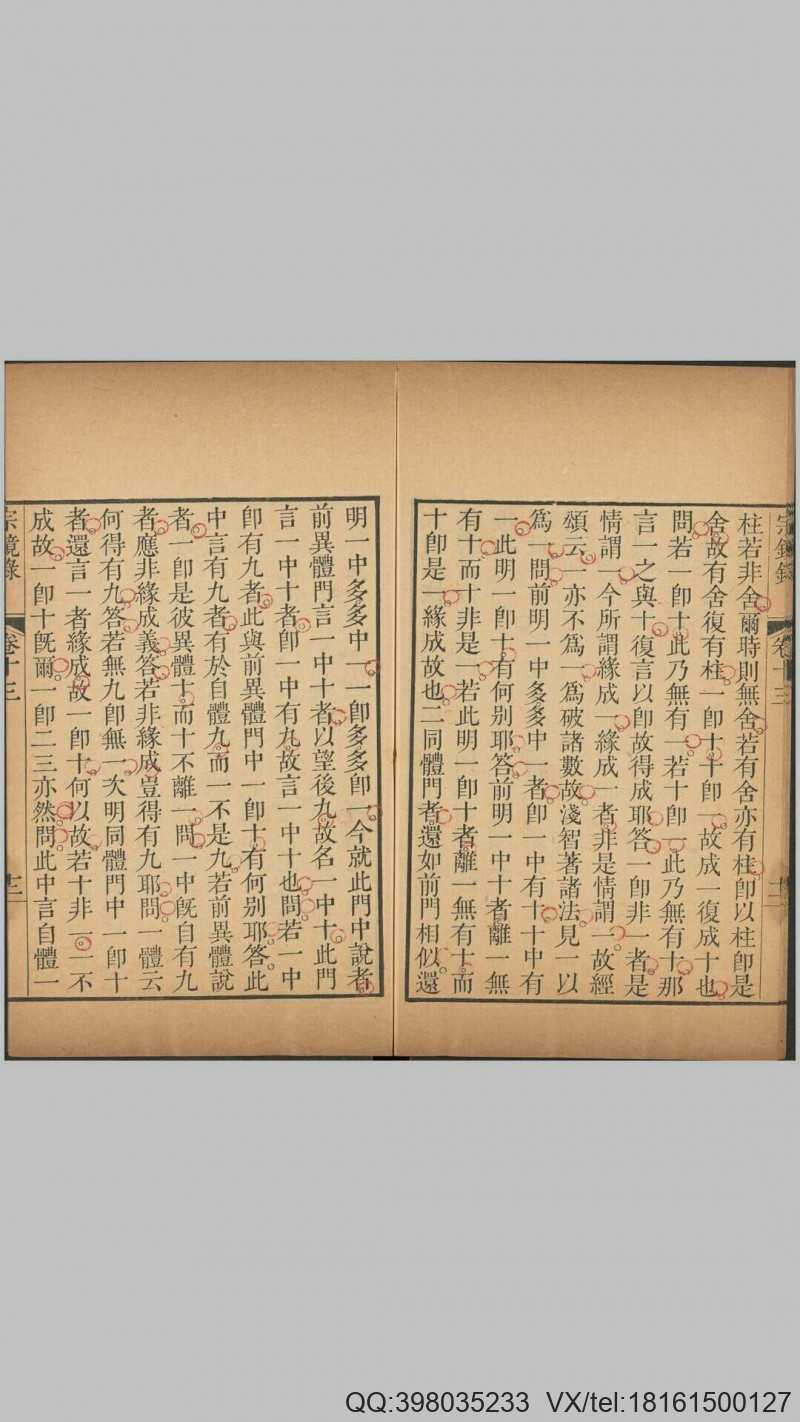 宗鏡錄
卷十三
十二
柱若非舍爾時則無舍若有舍亦有柱卽以柱卽是
舍故有舍復有柱一卽十十卽一故成一復成十也
問若一卽十此乃無有一若十卽一此乃無有十那
言一之與十復言以卽故得成耶答一卽非一者是
情謂一今所謂緣成一緣成一者非是情謂一故經
頌云一亦不爲一爲破諸數故淺智著諸法見一以
爲一問前明一中多多中一者卽一中有十十中有
一此明一卽十有何別耶答前明一中十者離一無
有十而十非是一若此明一卽十者離一無有十而
十卽是一緣成故也二同體門者還如前門相似還
明一中多多中一一卽多多卽一今就此門中說者
前異體門言一中十者以望後九故名一中十此門
言一中十者卽一中有九故言一中十也問若一中
卽有九者此與前異體門中一卽十有何別耶答此
中言有九者有於自體九而一不是九若前異體說
者一卽是彼異體十而十不離一問一中旣自有九
者應非緣成義答若非緣成豈得有九耶問一體云
何得有九答若無九卽無一次明同體門中一卽十
者還言一者緣成故一卽十何以故若十非一一不
成故一卽十旣爾一卽二三亦然問此中言自體一
宗鏡錄
卷十三
十三
QQ:398035233 VX/tel:18161500127